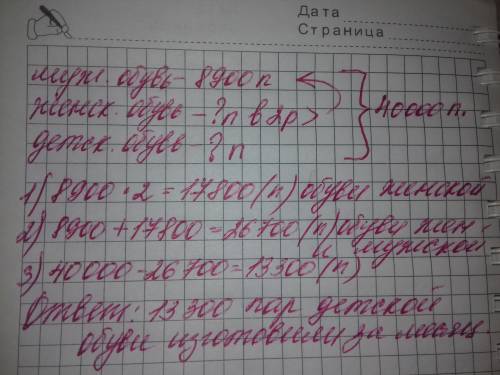 Дата
Страница
муж. обувь - 8900 п
женск. обувь - ? п в 2р >
детск. обувь - ? п
40000 п.
1) 8900 · 2 = 17800 (п) обуви женской
2) 8900 + 17800 = 26700 (п) обуви жен-
и мужской
3) 40000 - 26700 = 13300 (п)
Ответ: 13 300 пар детской
обуви изготовили за месяц